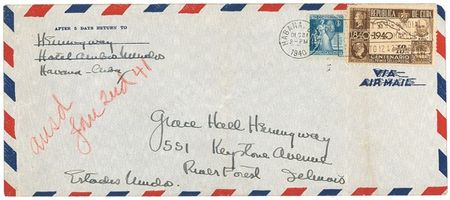 AFTER 5 DAYS RETURN TO
Hemingway
Hotel Ambos Mundos
Havana - Cuba
HABANA,
1940
REPUBLICA DE CUBA
1840 1940
CENTENARIO
VIA
AIR MAIL
ansd
Jan 2nd 41
Grace Hall Hemingway
551 Keystone Avenue
River Forest Illinois
Estados Unidos.